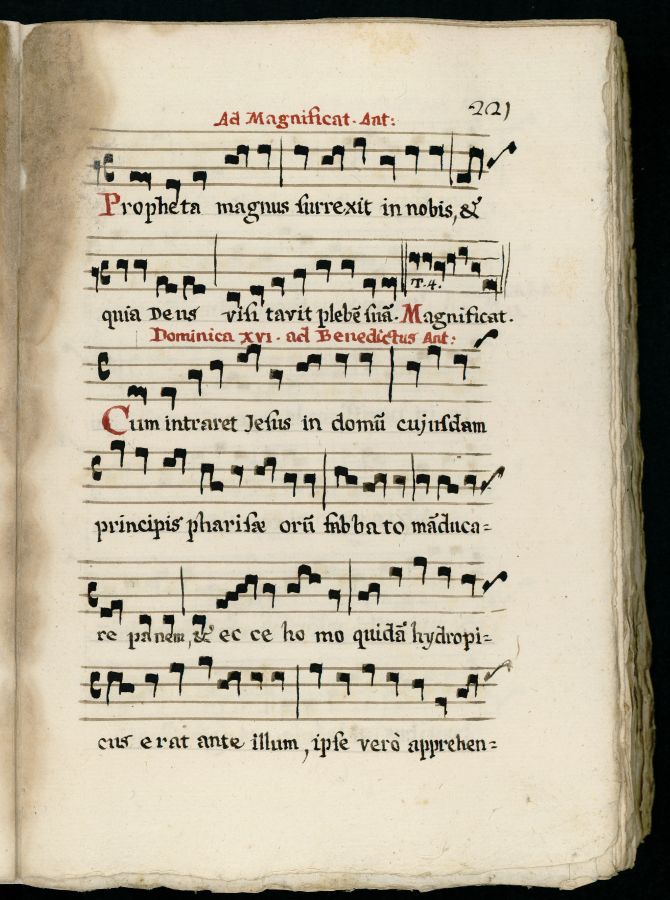 221
Ad Magnificat. Ant:
Propheta magnus surrexit in nobis, &
T. 4.
quia Deus visi tavit plebē suā. Magnificat.
Dominica XVI. ad Benedictus Ant:
Cum intraret Jesus in domū cujusdam
principis pharisæ orū sabbato māduca=
re panem, & ec ce ho mo quidā hydropi=
cus erat ante illum, ipse verò apprehen=